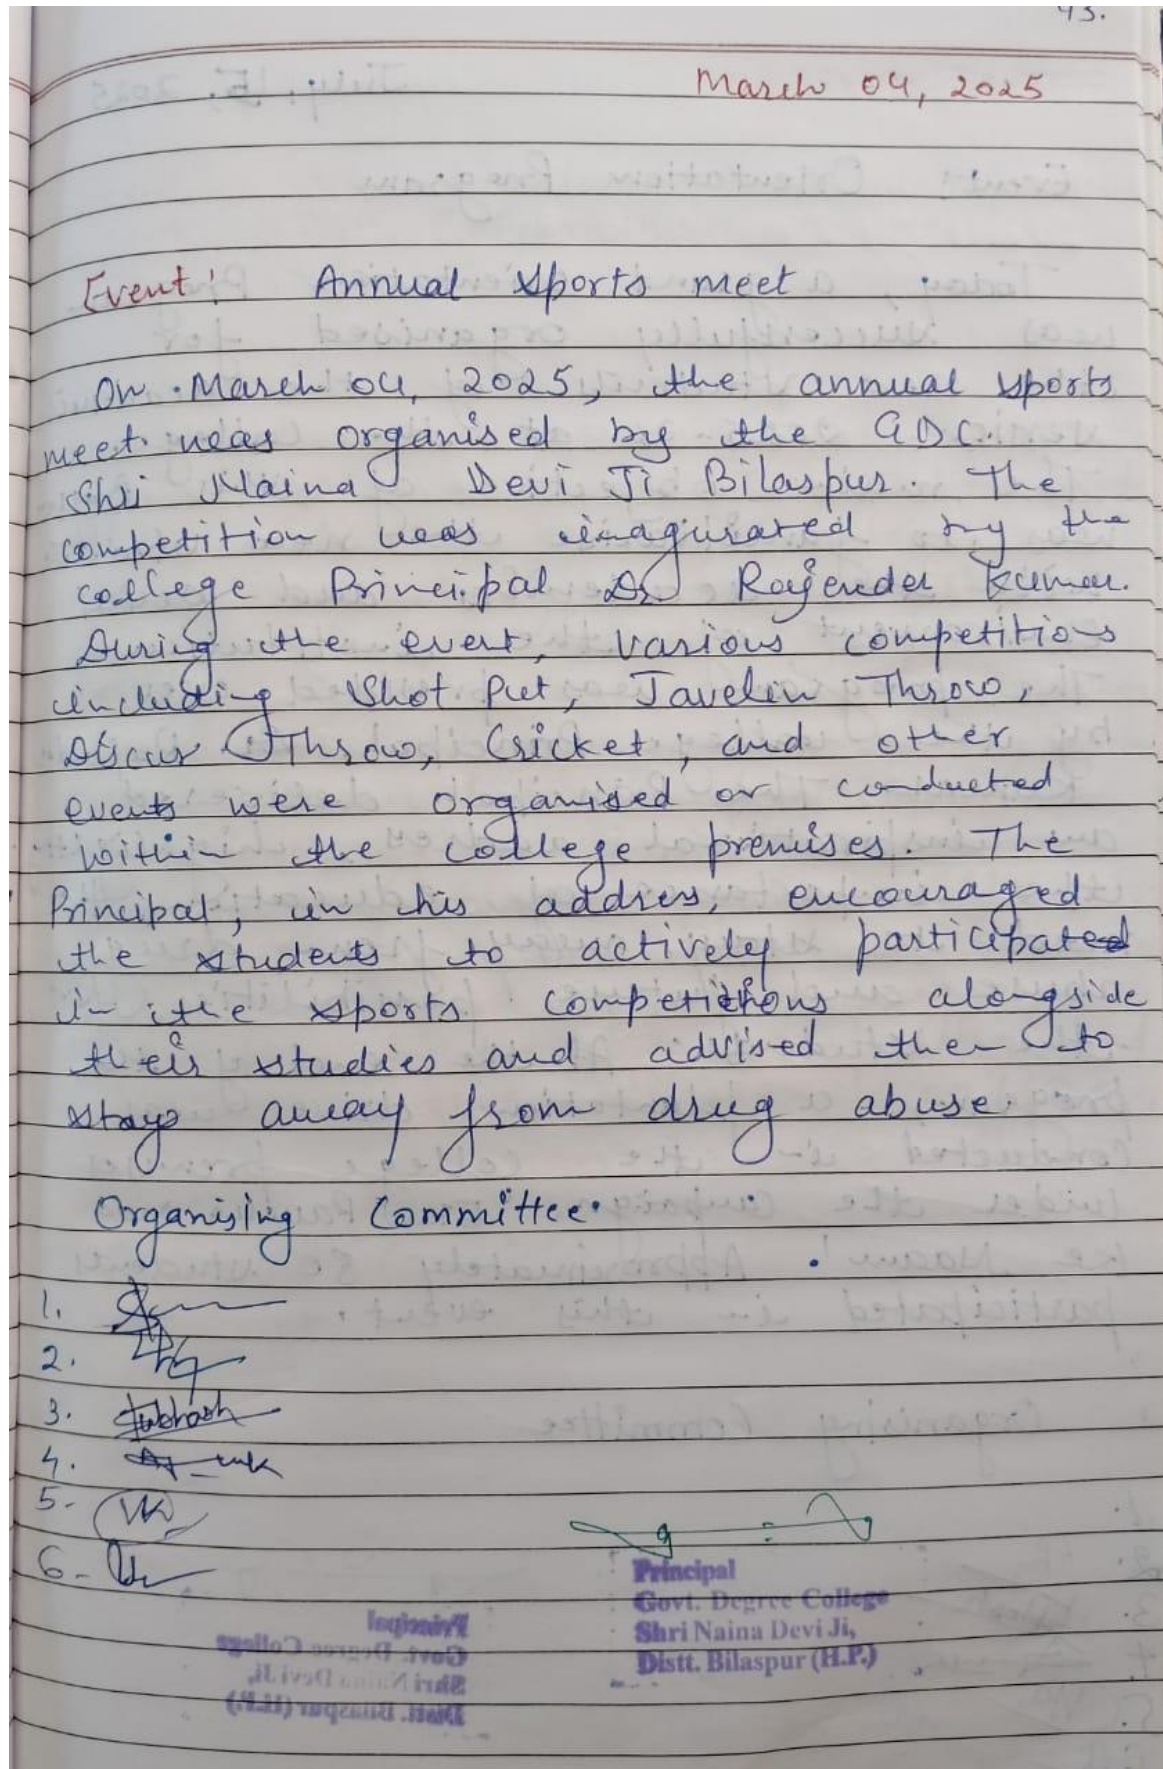 43.
March 04, 2025
Event: Annual sports meet
On March 04, 2025, the annual sports
meet was organised by the GDC.
Shri Naina Devi Ji Bilaspur. The
competition was inagurated by the
college Principal Dr Rajender Kumar.
During the event, various competitions
including Shot Put, Javelin Throw,
Discus Throw, Cricket, and other
events were organised or conducted
within the college premises. The
Principal, in his address, encouraged
the students to actively participated
in the sports competitions alongside
their studies and advised them to
stay away from drug abuse.
Organising Committee.
1.
2.
3. Subhash
4.
5-
6-
Principal
Govt. Degree College
Shri Naina Devi Ji,
Distt. Bilaspur (H.P.)